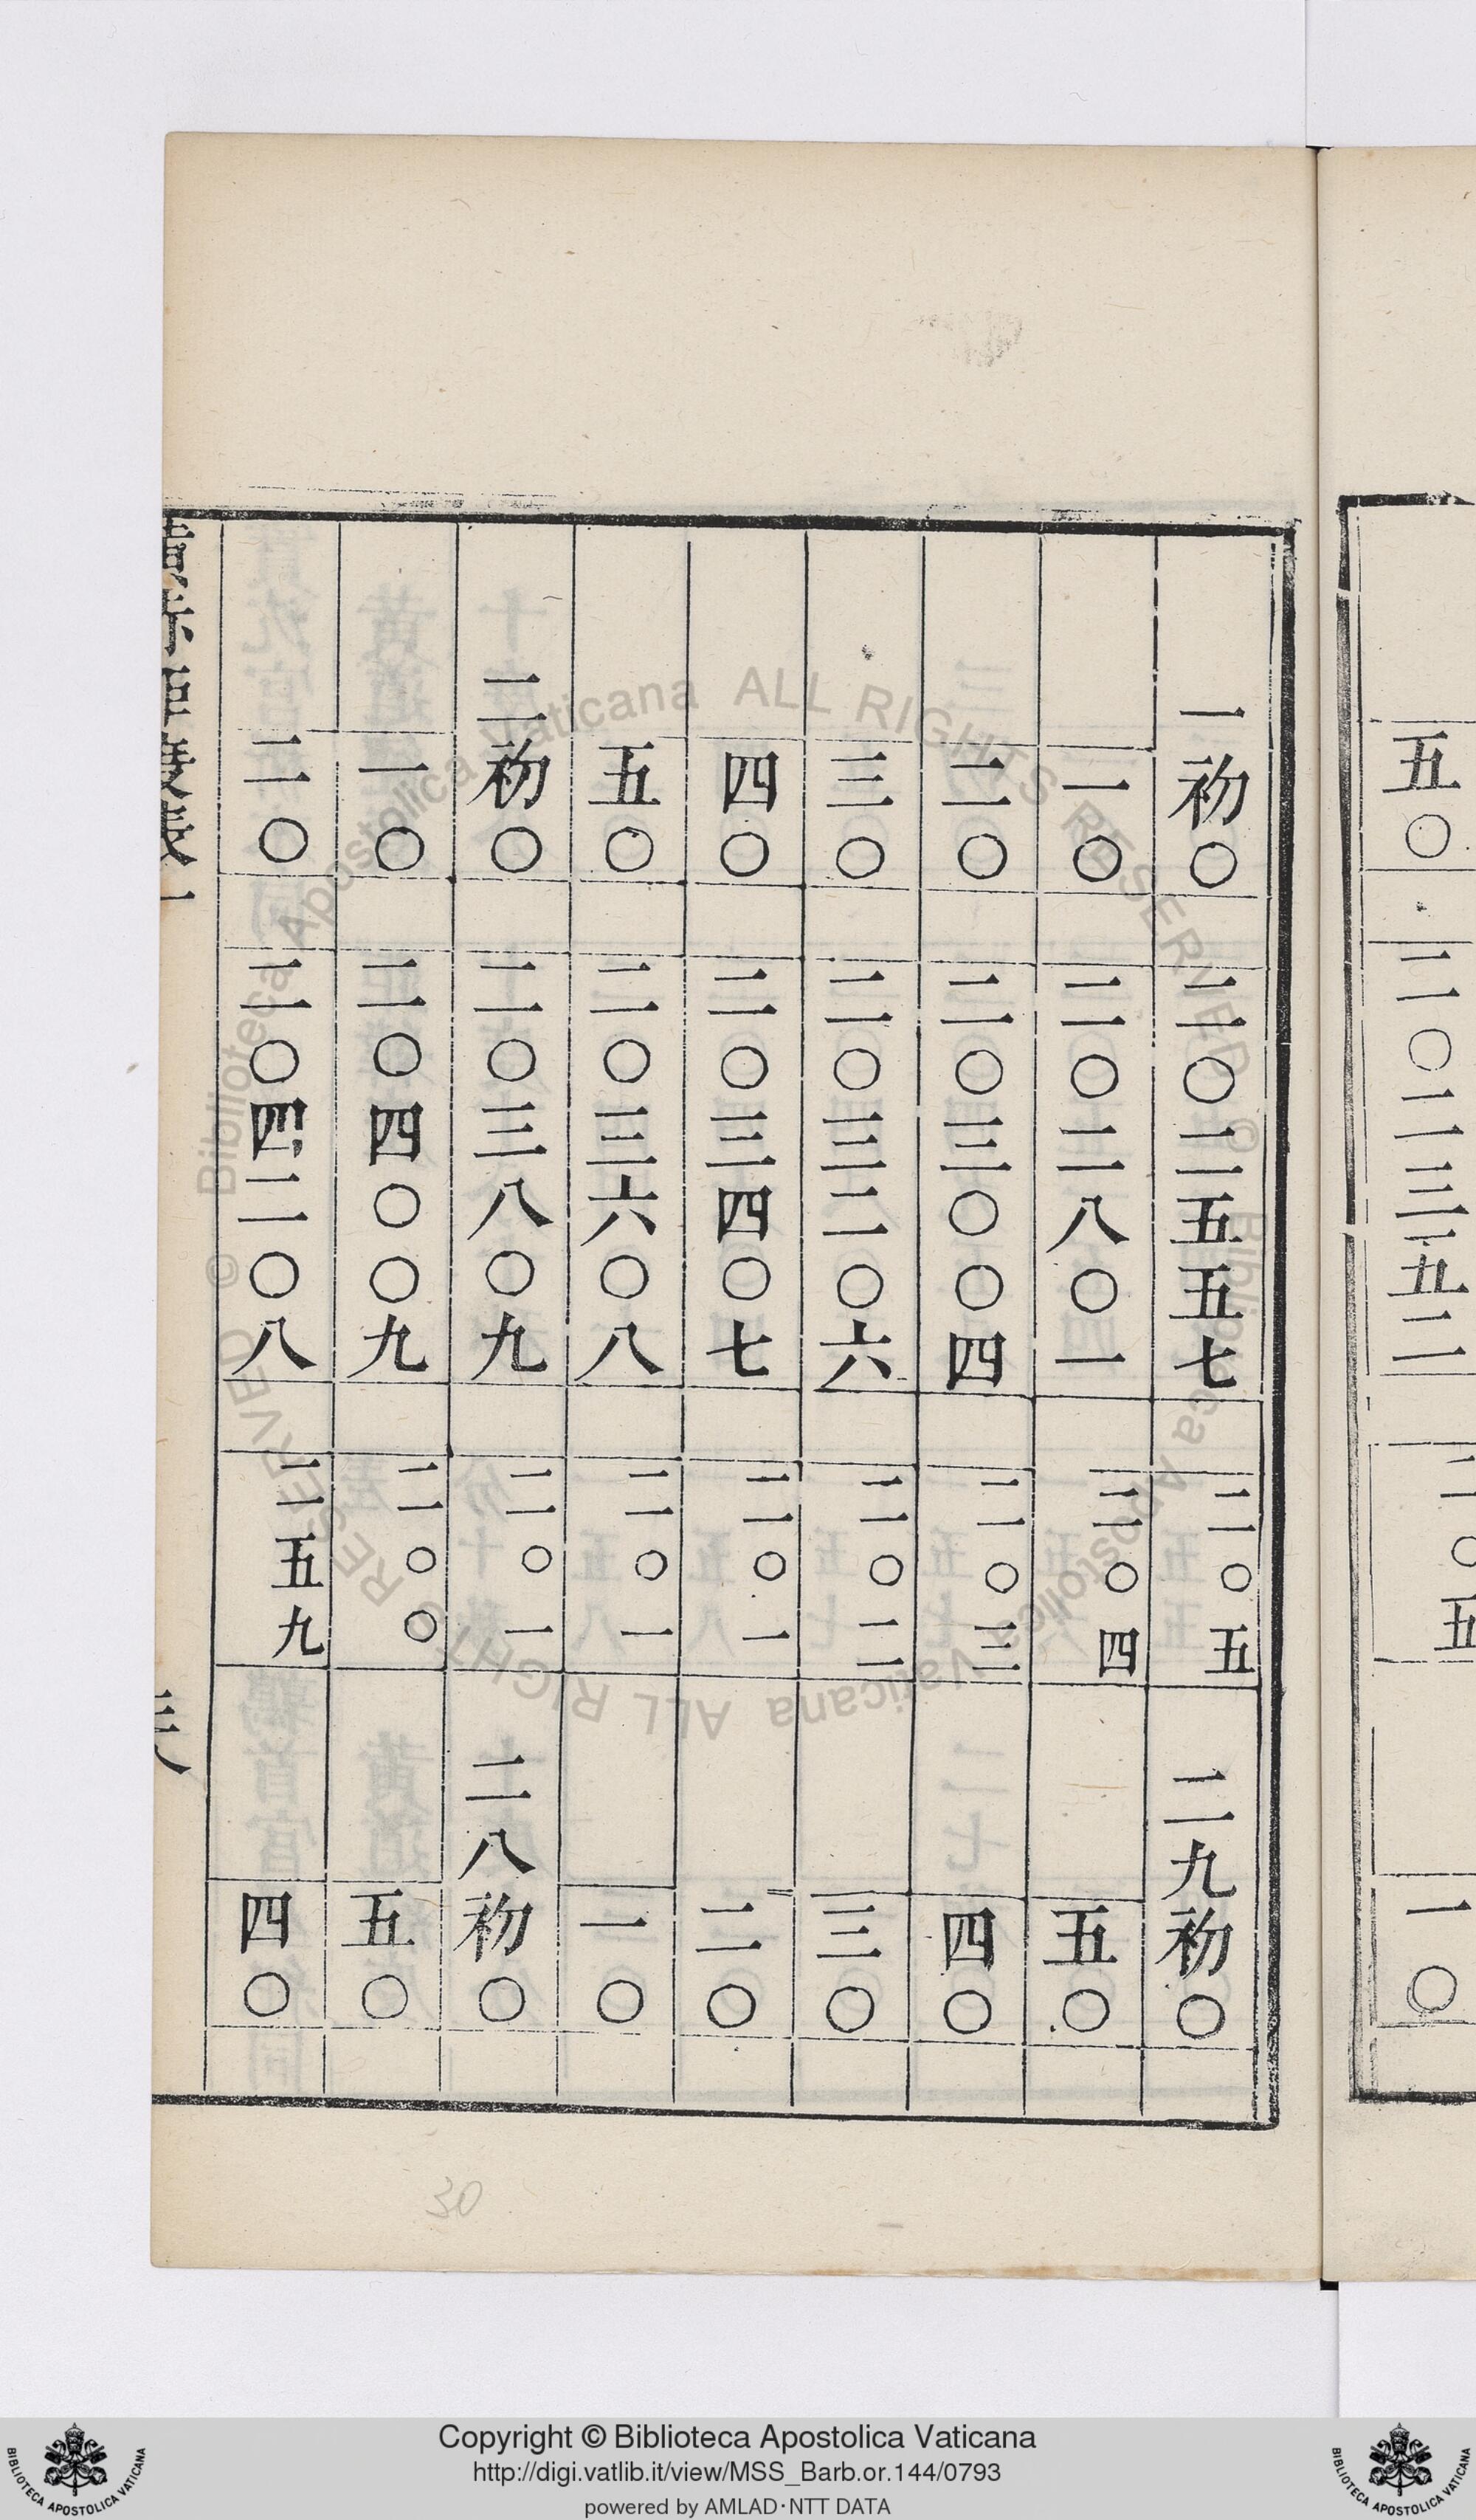 五〇 二〇二三五二 二〇五 一〇
一初〇 二〇二五五七 二〇五 二九初〇
一〇 二〇二八〇一 二〇四 五〇
二〇 二〇三〇〇四 二〇三 四〇
三〇 二〇三二〇六 二〇二 三〇
四〇 二〇三四〇七 二〇一 二〇
五〇 二〇三六〇八 二〇一 一〇
二初〇 二〇三八〇九 二〇一 二八初〇
一〇 二〇四〇〇九 二〇〇 五〇
二〇 二〇四二〇八 二五九 四〇
30
Copyright © Biblioteca Apostolica Vaticana
http://digi.vatlib.it/view/MSS_Barb.or.144/0793
powered by AMLAD·NTT DATA